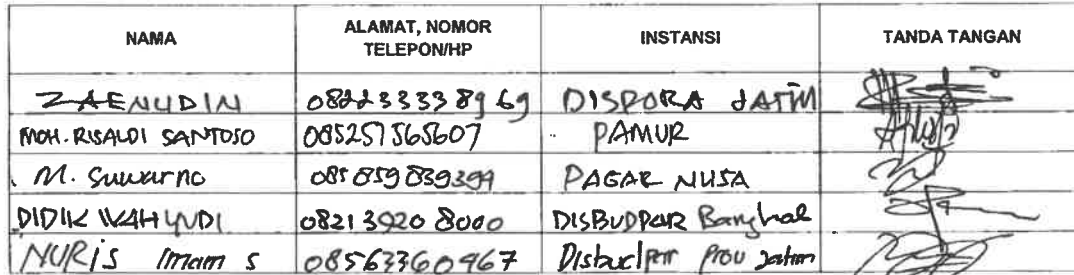 NAMA ALAMAT, NOMOR TELEPON/HP INSTANSI TANDA TANGAN
ZAENUDIN 082233338969 DISPORA JATIM
MOH. RISALDI SANTOSO 085257565607 PAMUR
M. Suwarno 085859839399 PAGAR NUSA
DIDIK WAHYUDI 082139208000 DISBUDPAR Bangkal
NURIS Imam S 085633600467 Disbudpar Prov Jatim